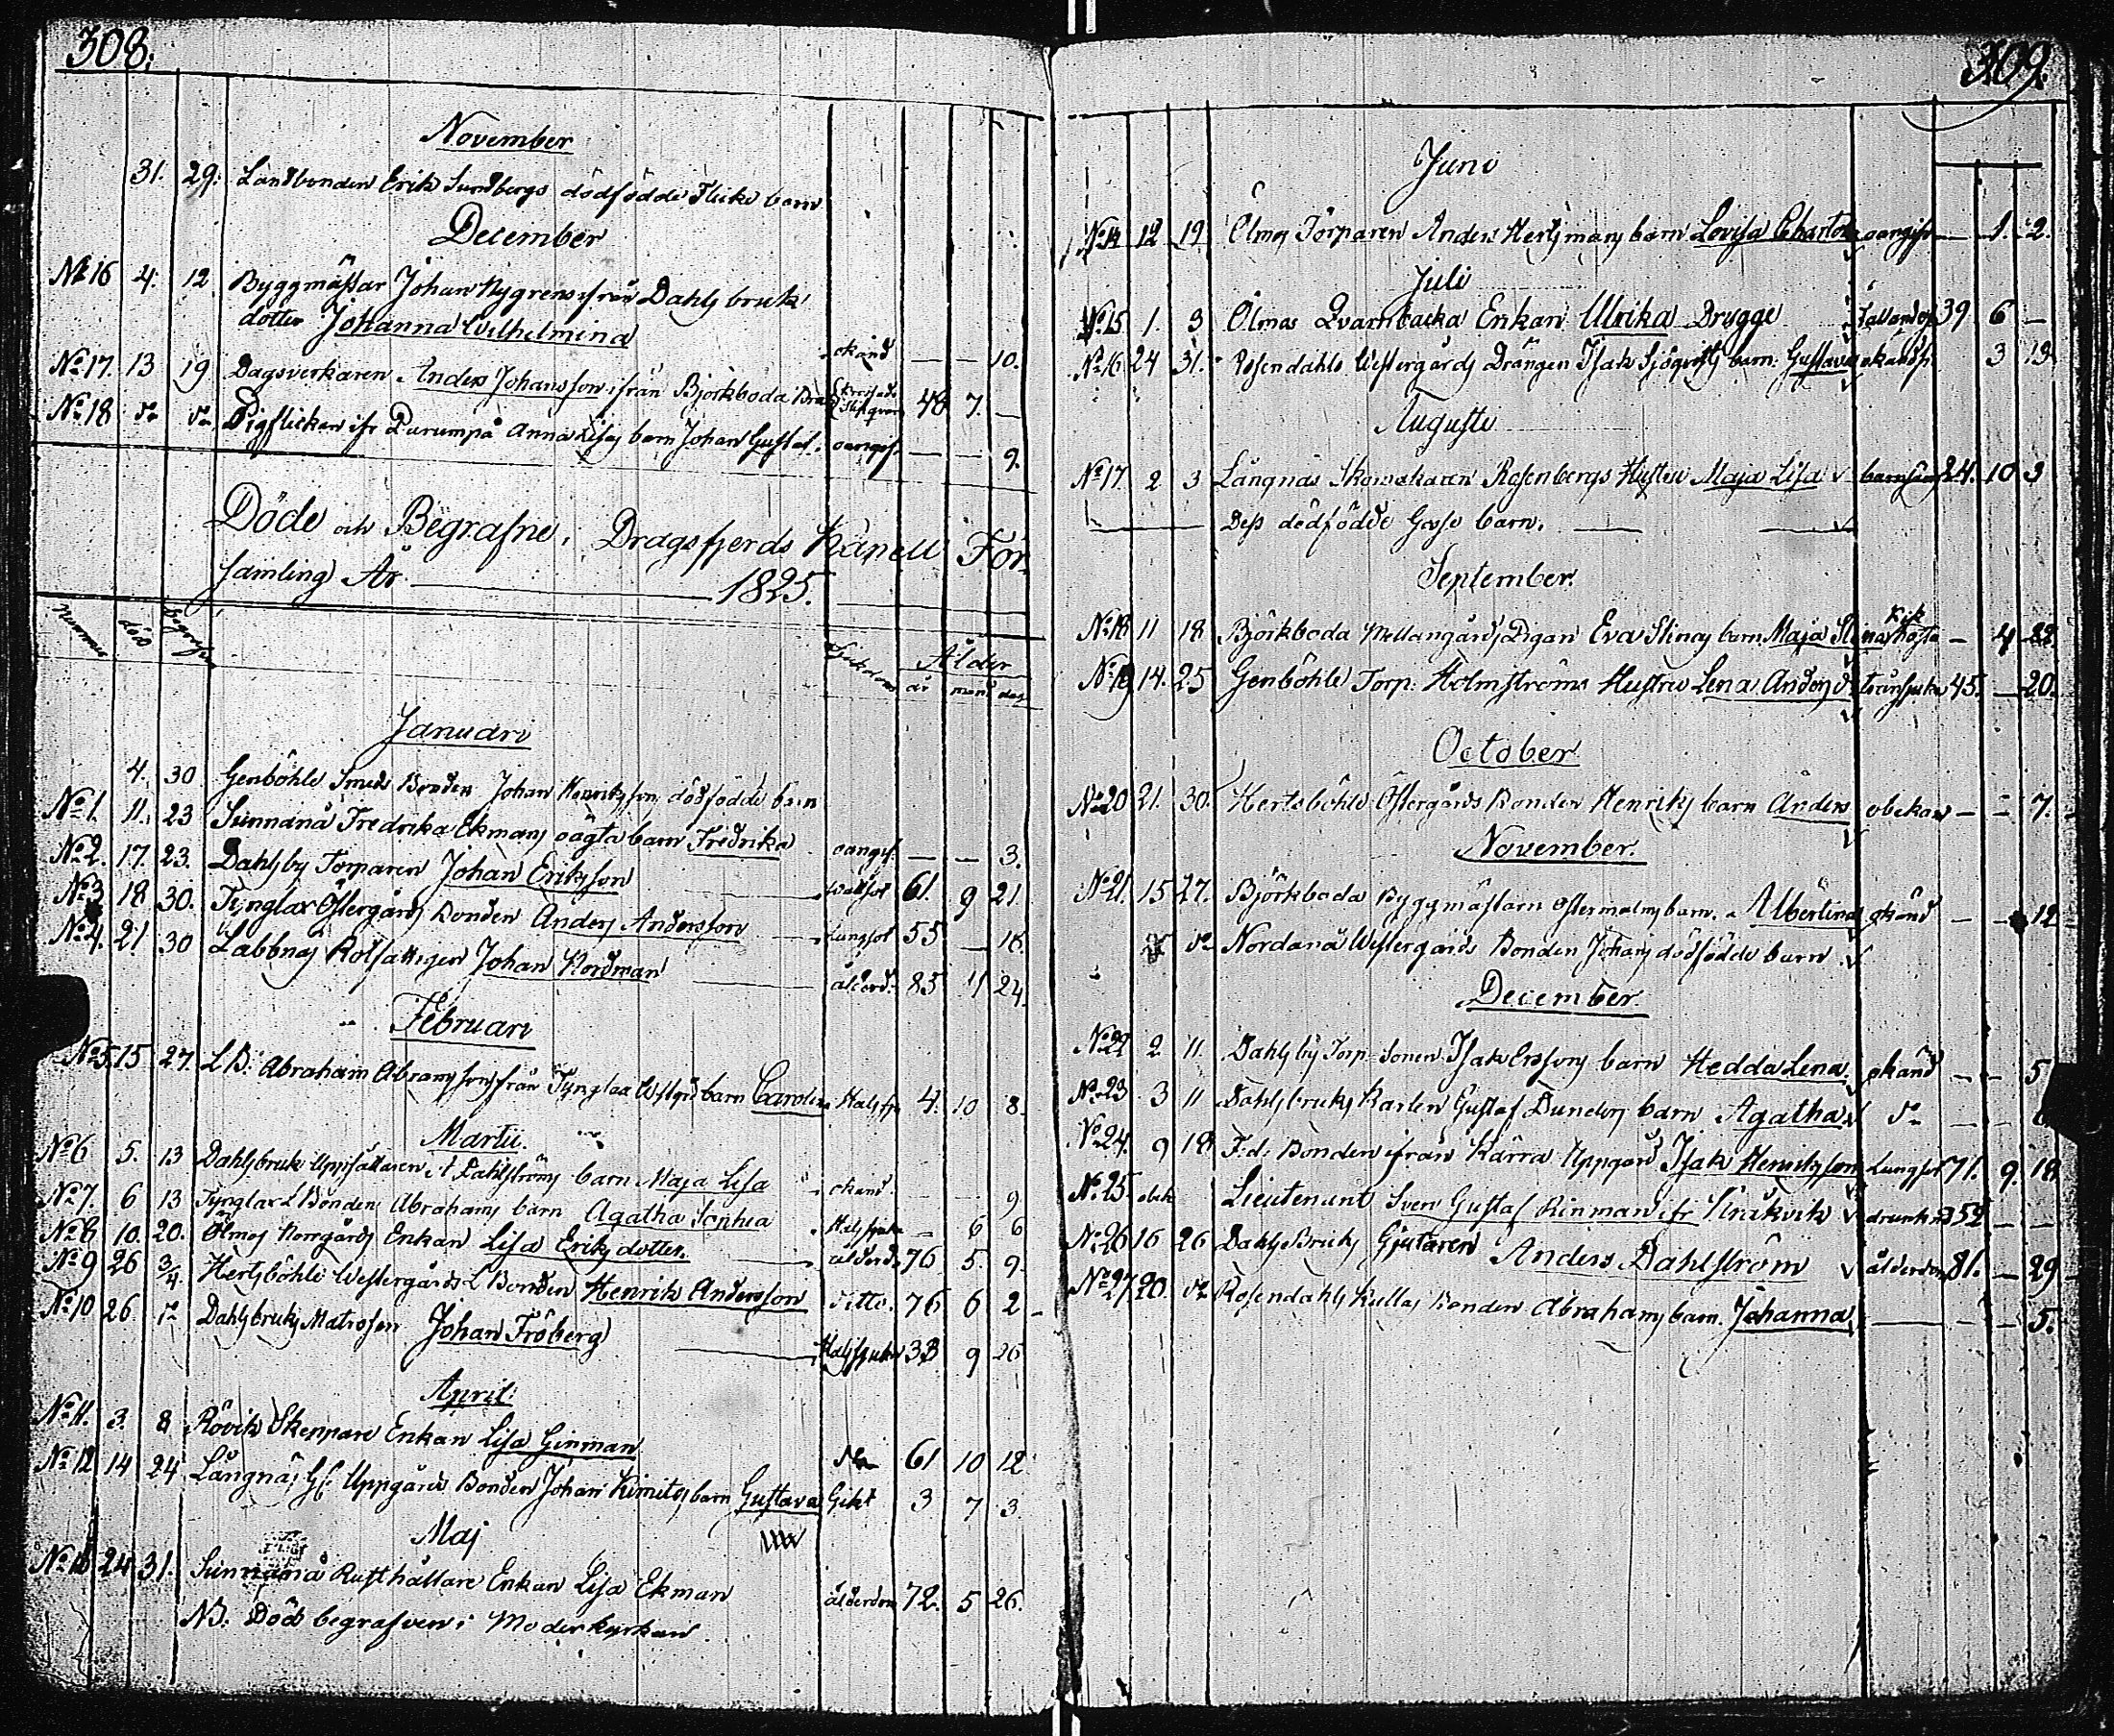 308.
November
31. 29. Landbonden Erik Sundbergs dödfödde Flicke barn
December
No 16 4. 12 Byggmästar Johan Nygrens ifrån Dahls bruk
dotter Johanna Wilhelmina okänd — — 10.
No 17. 13 19 Dagsverkaren Anders Johansson ifrån Björkboda 48 7. —
No 18 do do Pigflickan ifr Anna Lisas barn Johan Gustaf. oangif. — — 9.
Döde och Begrafne i Dragsfjerds Kapell För
samling År 1825.
Nummer död Begrafne Sjukdom Ålder
år mån. dag.
Januari
4. 30 Genböhle Smeds Bonden Johan Henrikssons dödfödde barn
No 1. 11. 23 Sunnanå Fredrika Ekmans oägta barn Fredrika oangif. — — 3.
No 2. 17. 23. Dahlsby Torparen Johan Eriksson 61. 9 21.
No 3 18 30. Tynglax Östergårds Bonden Anders Andersson Lungsot 55 — 18.
No 4. 21 30 Labbnäs Johan Nordman ålderd. 85 11 24.
Februari
No 5. 15 27. L B. Abraham Abramssons från Tynglax barn Carolina Halssj. 4. 10 8.
Martii
No 6 5. 13 Dahlsbruk Uppsättaren Dahlströms barn Maja Lisa okänd — — 9
No 7. 6 13 Tynglax L Bonden Abrahams barn Agatha Sophia Halssjuka — 6 6
No 8 10. 20. Ölmos Norrgårds Enkan Lisa Eriksdotter ålderd. 76 5. 9.
No 9 26 3/4. Hertsböhle Westergårds L Bonden Henrik Andersson Ditto. 76 6 2
No 10 26 do Dahlsbruks Matrosen Johan Fröberg Halssjuka 33 9 26
April
No 11. 3. 8 Rövik Skeppare Enkan Lisa Ginman do 61 10 12
No 12 14 24 Långnäs Uppgårds Bonden Johan Kimitos barn Gustava Gikt 3 7 3
Maj
No 13 24 31. Sunnanå Rusthållare Enkan Lisa Ekman ålderdom 72. 5 26.
NB. Död begrafven i Moderkyrkan
309.
Juni
No 14 12 19 Ölmos Torparen Anders Hertsmans barn Lovisa Charlotta oangif. — 1. 2.
Juli
No 15 1. 3 Ölmos Qvarnbacka Enkan Ulrika Drugge 39 6 —
No 16 24 31. Rosendahls Westergårds Drängen Isak Sjöqvists barn Gustava okänd — 3 13
Augusti
No 17 2 3 Långnäs Skomakaren Rosenbergs Hustru Maja Lisa barnsäng 24. 10 3
Dess dödfödde Gosse barn.
September.
No 18 11 18 Björkboda Mellangårds Pigan Eva Stinas barn Maja Stina Kikhosta — 4 22
No 19 14. 25 Genböhle Torp. Holmströms Hustru Lena Anders d. 45. — 20.
October
No 20 21. 30. Hertsböhle Östergårds Bonden Henriks barn Anders obekant — — 7.
November.
No 21. 15 27. Björkboda Byggmästarn Östermalms barn Albertina okänd — — 12
do Nordanå Westergårds Bonden Johans dödfödde barn
December
No 22 2 11. Dahlsby Torp. Sonen Isak Erssons barn Hedda Lena okänd — — 5
No 23 3 11 Dahlsbruks Karlen Gustaf barn Agatha do — —
No 24. 9 18 F. d. Bonden ifrån Kärra Uppgård Isak Henriksson Lungsot 71. 9. 18
No 25. Lieutenant Sven Gustaf Rinman ifr Kråkvik 52 — —
No 26 16 26 Dahls Bruks Gjutaren Anders Dahlström ålderdom 81. — 29
No 27 20. do Rosendahls Kullas Bonden Abrahams barn Johanna — — 5.